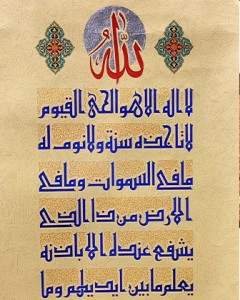 الله
لا اله الا هو الحى القيوم
لا تاخذه سنة ولا نوم له
ما فى السموات وما فى
الارض من ذا الذى
يشفع عنده الا باذنه
يعلم ما بين ايديهم وما